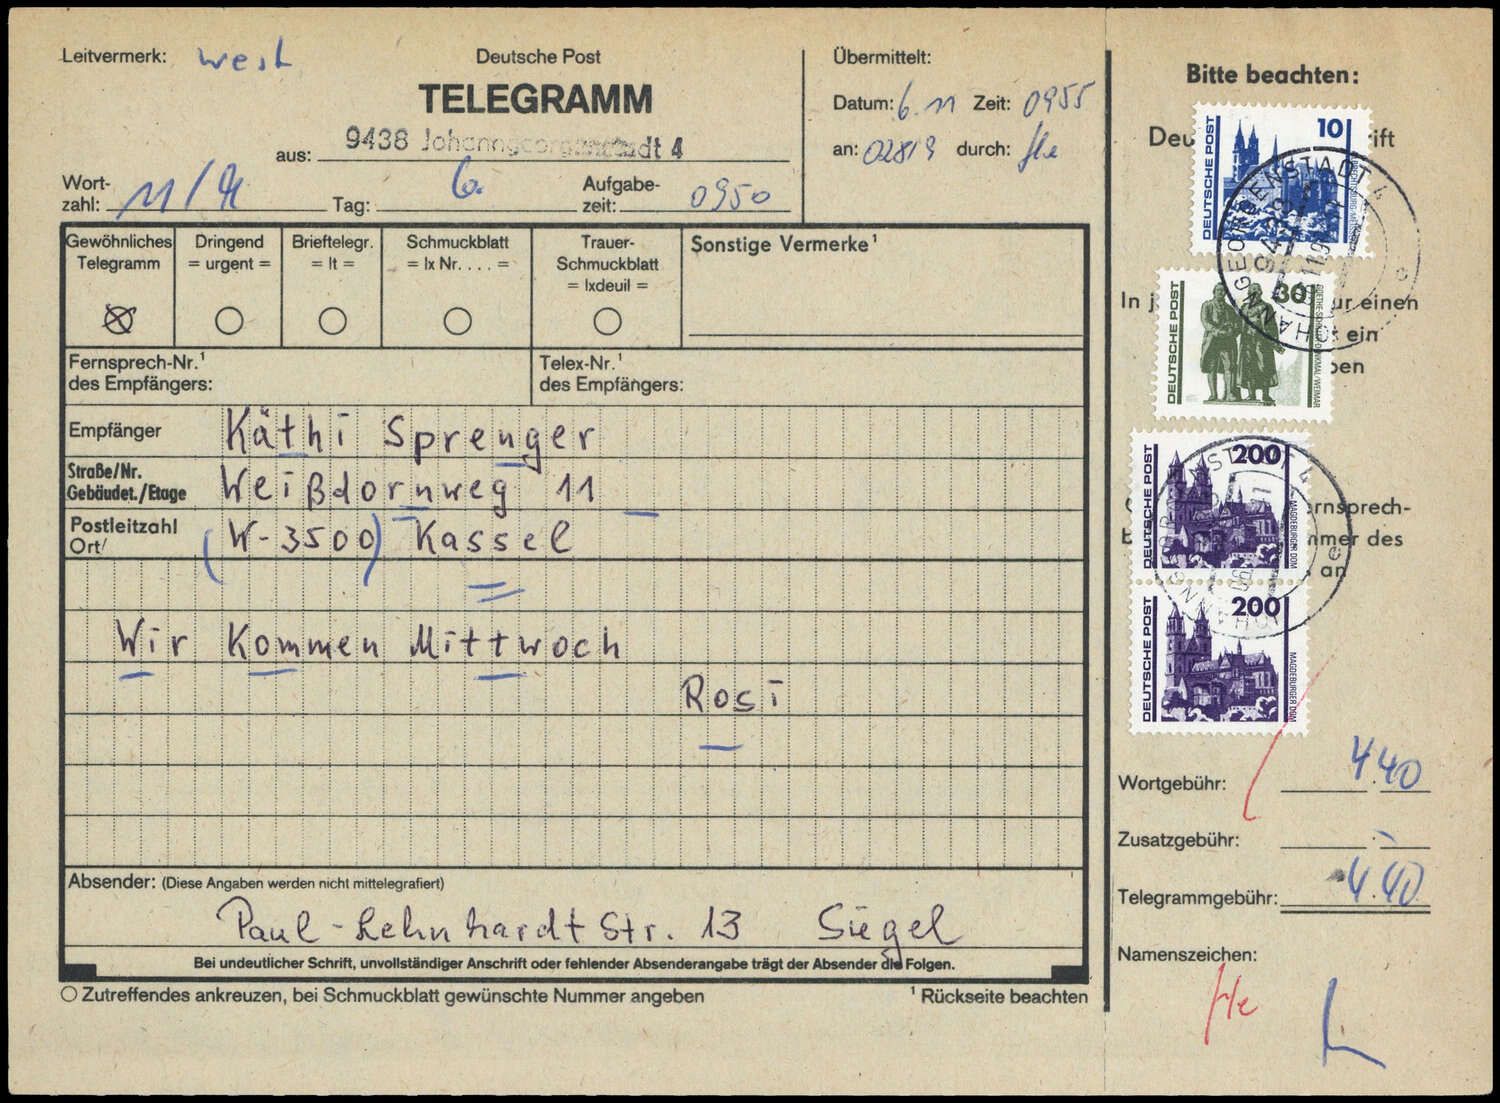 Leitvermerk: West
Deutsche Post
TELEGRAMM
aus: 9438 Johanngeorgenstadt 4
Wort-
zahl: 11/
Tag: 6.
Aufgabe-
zeit: 0950
Übermittelt:
Datum: 6. 11 Zeit: 0955
an: 02819 durch: He
Gewöhnliches
Telegramm
Dringend
= urgent =
Brieftelegr.
= lt =
Schmuckblatt
= lx Nr. . . . =
Trauer-
Schmuckblatt
= lxdeuil =
Sonstige Vermerke¹
Fernsprech-Nr.¹
des Empfängers:
Telex-Nr.¹
des Empfängers:
Empfänger Käthi Sprenger
Straße/Nr.
Gebäudet./Etage Weißdornweg 11
Postleitzahl
Ort/ (W-3500) Kassel
Wir kommen Mittwoch
Rosi
Absender: (Diese Angaben werden nicht mittelegrafiert)
Paul-Lehnhardt Str. 13 Siegel
Bei undeutlicher Schrift, unvollständiger Anschrift oder fehlender Absenderangabe trägt der Absender die Folgen.
Zutreffendes ankreuzen, bei Schmuckblatt gewünschte Nummer angeben
¹ Rückseite beachten
Bitte beachten:
Deu ift
10
DEUTSCHE POST
JOHANNGEORGENSTADT 4
9438
In ur einen
ein
ben
30
DEUTSCHE POST
GOETHE-SCHILLER-DENKMAL/WEIMAR
ernsprech-
mmer des
an
200
DEUTSCHE POST
MAGDEBURGER DOM
200
DEUTSCHE POST
MAGDEBURGER DOM
Wortgebühr: 4.40
Zusatzgebühr: . -
Telegrammgebühr: 4.40
Namenszeichen:
He